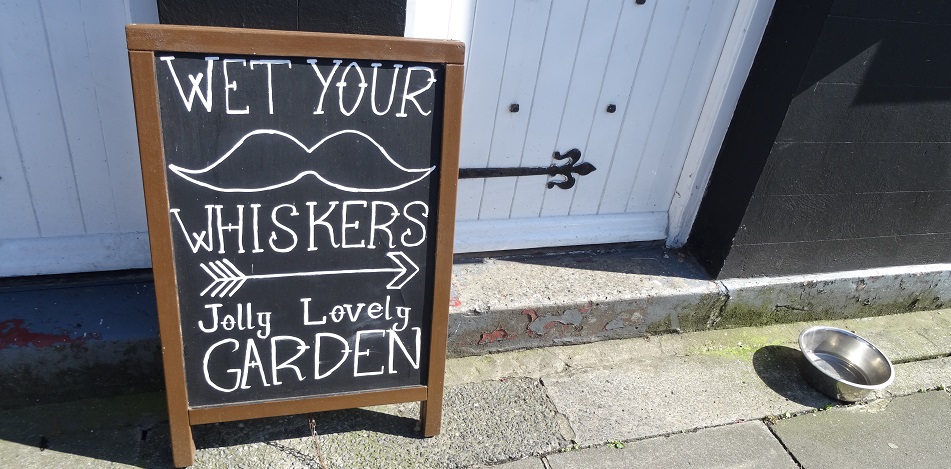 WET YOUR
WHISKERS
Jolly Lovely
GARDEN